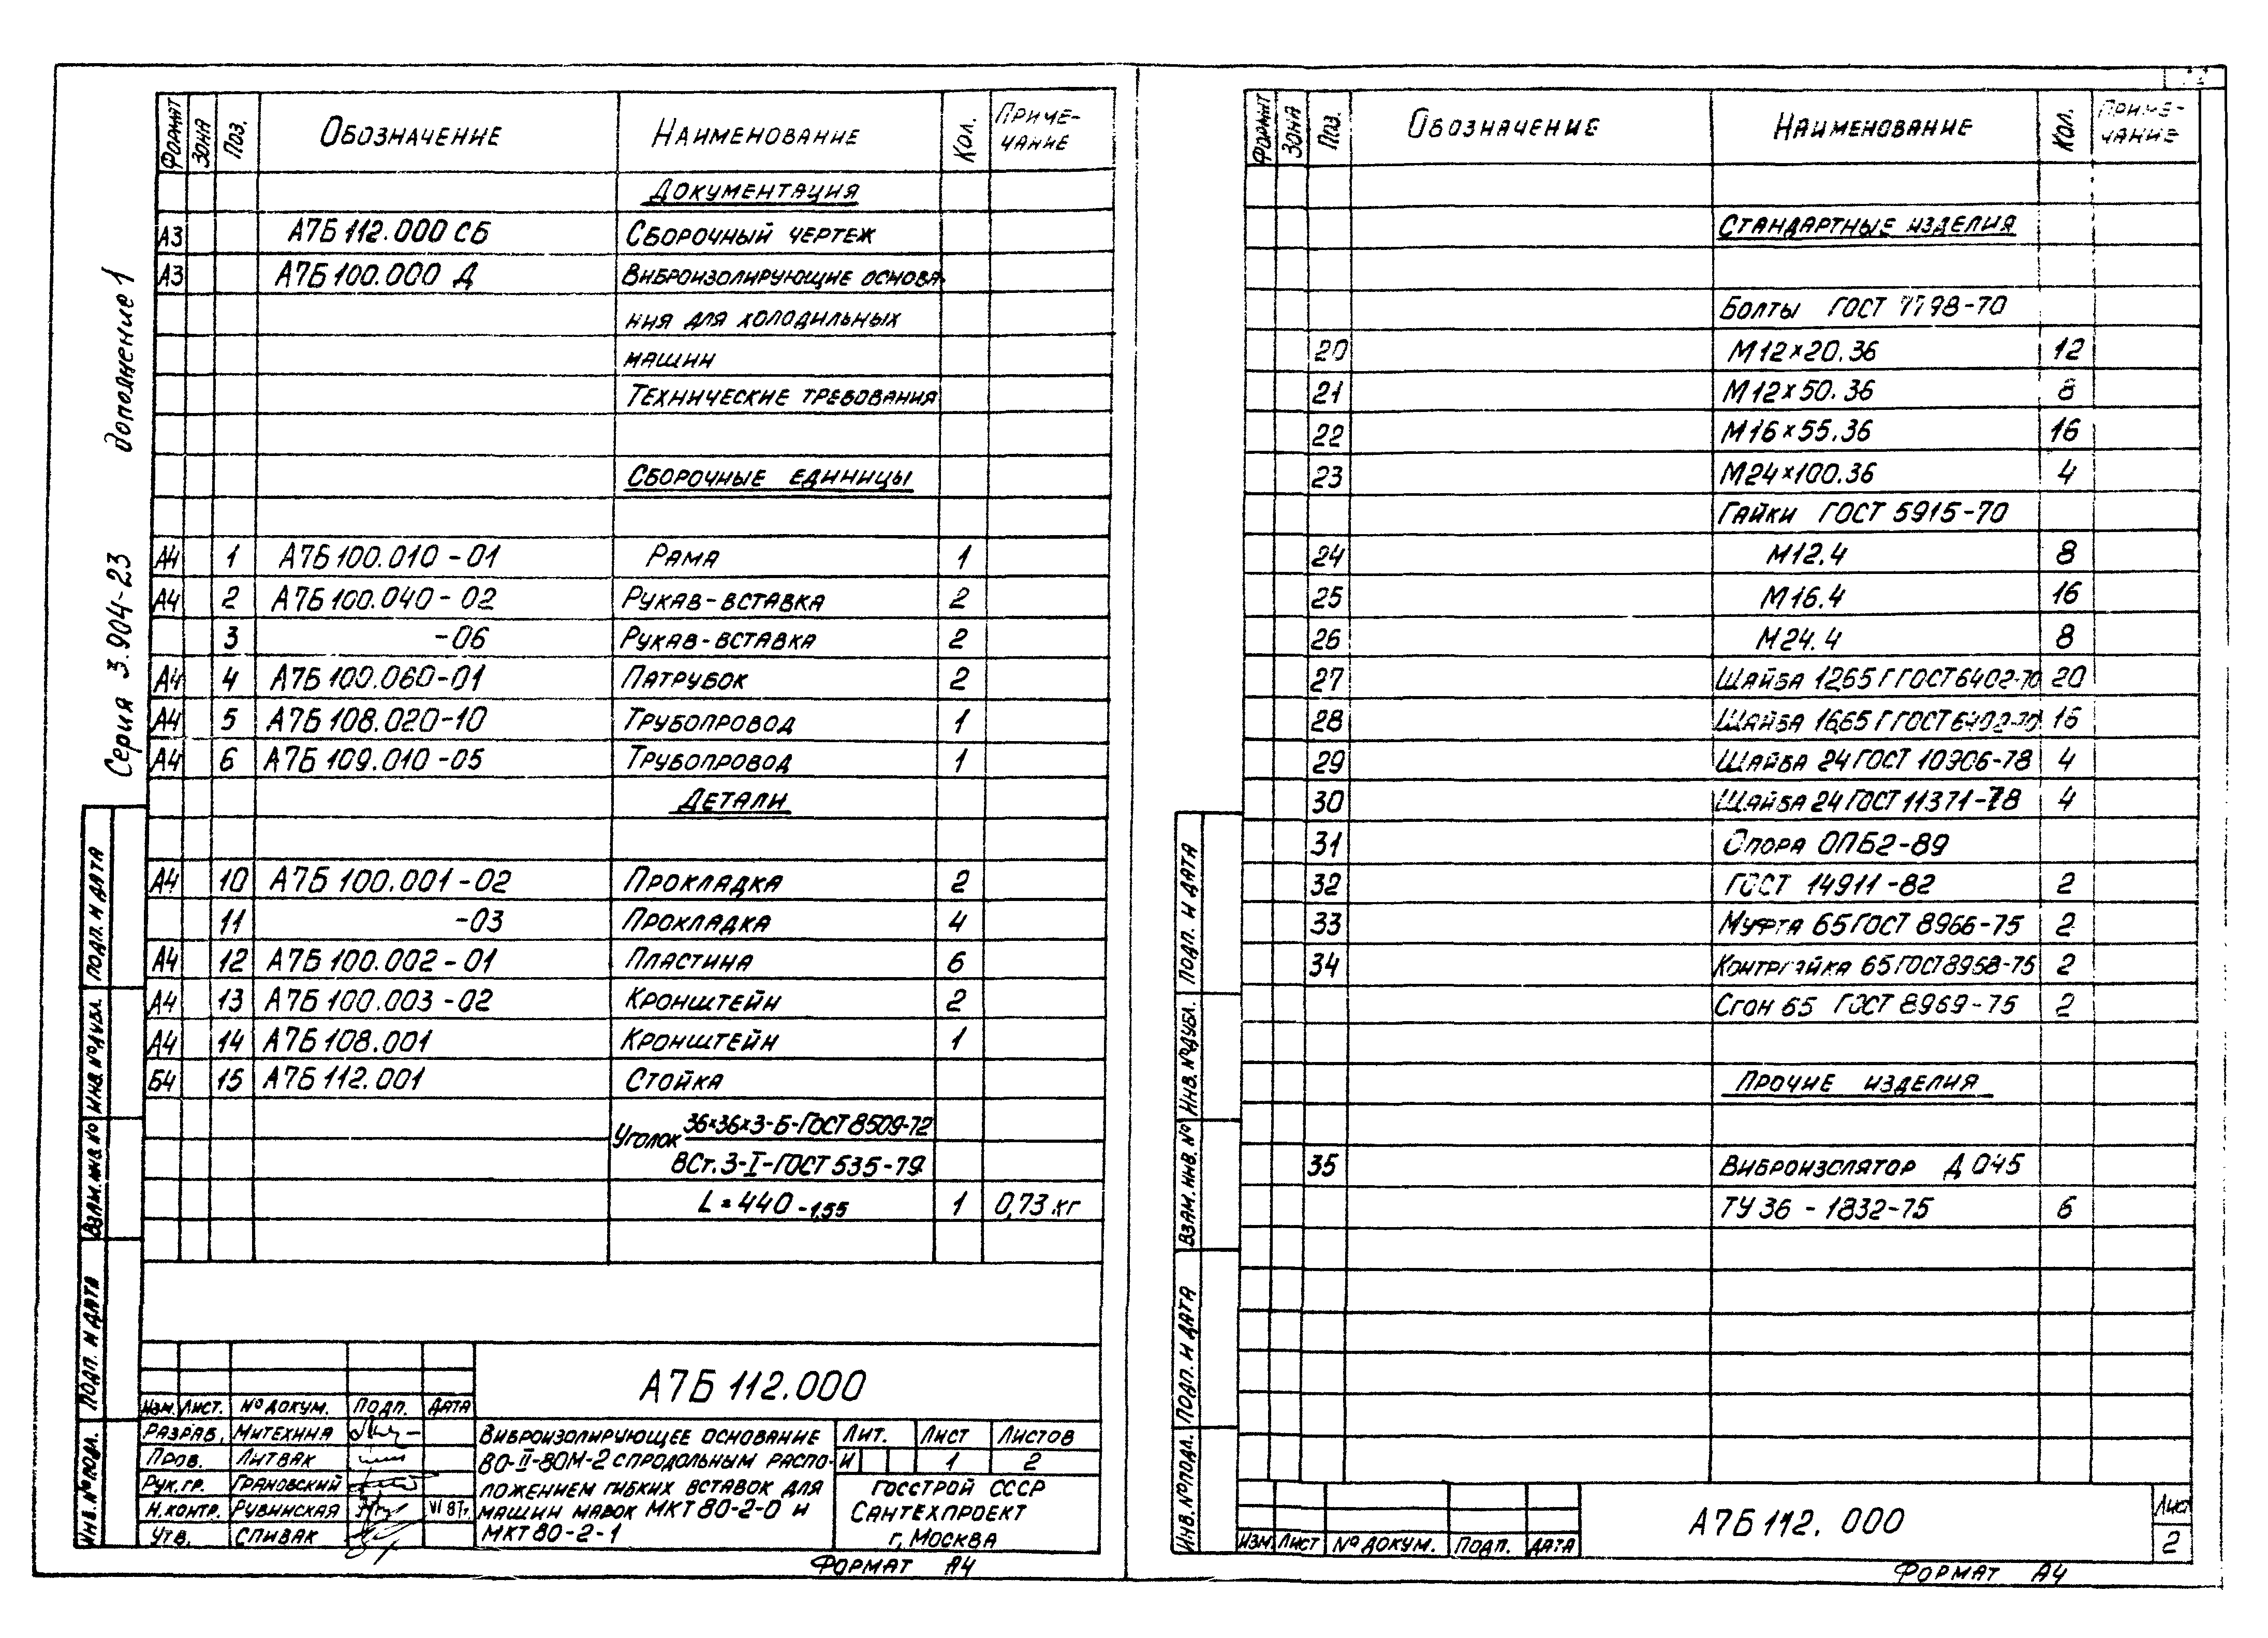 Серия 3.904-23 дополнение 1
Формат Зона Поз. Обозначение Наименование Кол. Примечание
Документация
А3 А7Б 112.000 СБ Сборочный чертеж
А3 А7Б 100.000 Д Виброизолирующие основа-
ния для холодильных
машин
Технические требования
Сборочные единицы
А4 1 А7Б 100.010-01 Рама 1
А4 2 А7Б 100.040-02 Рукав-вставка 2
3 -06 Рукав-вставка 2
А4 4 А7Б 100.060-01 Патрубок 2
А4 5 А7Б 108.020-10 Трубопровод 1
А4 6 А7Б 109.010-05 Трубопровод 1
Детали
А4 10 А7Б 100.001-02 Прокладка 2
11 -03 Прокладка 4
А4 12 А7Б 100.002-01 Пластина 6
А4 13 А7Б 100.003-02 Кронштейн 2
А4 14 А7Б 108.001 Кронштейн 1
Б4 15 А7Б 112.001 Стойка
Уголок 36×36×3-Б-ГОСТ 8509-72
ВСт.3-I-ГОСТ 535-79
L=440 -1,55 1 0,73 кг
Подп. и дата
Инв. № дубл.
Взам. инв. №
Подп. и дата
Инв. № подл.
А7Б 112.000
Изм. Лист. № докум. Подп. Дата
Разраб. Митехина
Пров. Литвак
Рук.гр. Грановский
Н.контр. Рувинская VI 87г.
Утв. Спивак
Виброизолирующее основание
80-II-80М-2 с продольным распо-
ложением гибких вставок для
машин марок МКТ 80-2-0 и
МКТ 80-2-1
Лит. Лист Листов
И 1 2
Госстрой СССР
Сантехпроект
г. Москва
Формат А4
Формат Зона Поз. Обозначение Наименование Кол. Примечание
Стандартные изделия
Болты ГОСТ 7798-70
20 М12×20.36 12
21 М12×50.36 8
22 М16×55.36 16
23 М24×100.36 4
Гайки ГОСТ 5915-70
24 М12.4 8
25 М16.4 16
26 М24.4 8
27 Шайба 12.65Г ГОСТ 6402-70 20
28 Шайба 16.65Г ГОСТ 6402-70 16
29 Шайба 24 ГОСТ 10906-78 4
30 Шайба 24 ГОСТ 11371-78 4
31 Опора ОПБ2-89
32 ГОСТ 14911-82 2
33 Муфта 65 ГОСТ 8966-75 2
34 Контргайка 65 ГОСТ 8968-75 2
Сгон 65 ГОСТ 8969-75 2
Прочие изделия
35 Виброизолятор Д 045
ТУ 36-1832-75 6
Подп. и дата
Инв. № дубл.
Взам. инв. №
Подп. и дата
Инв. № подл.
Изм. Лист № докум. Подп. Дата
А7Б 112.000
Лист
2
Формат А4